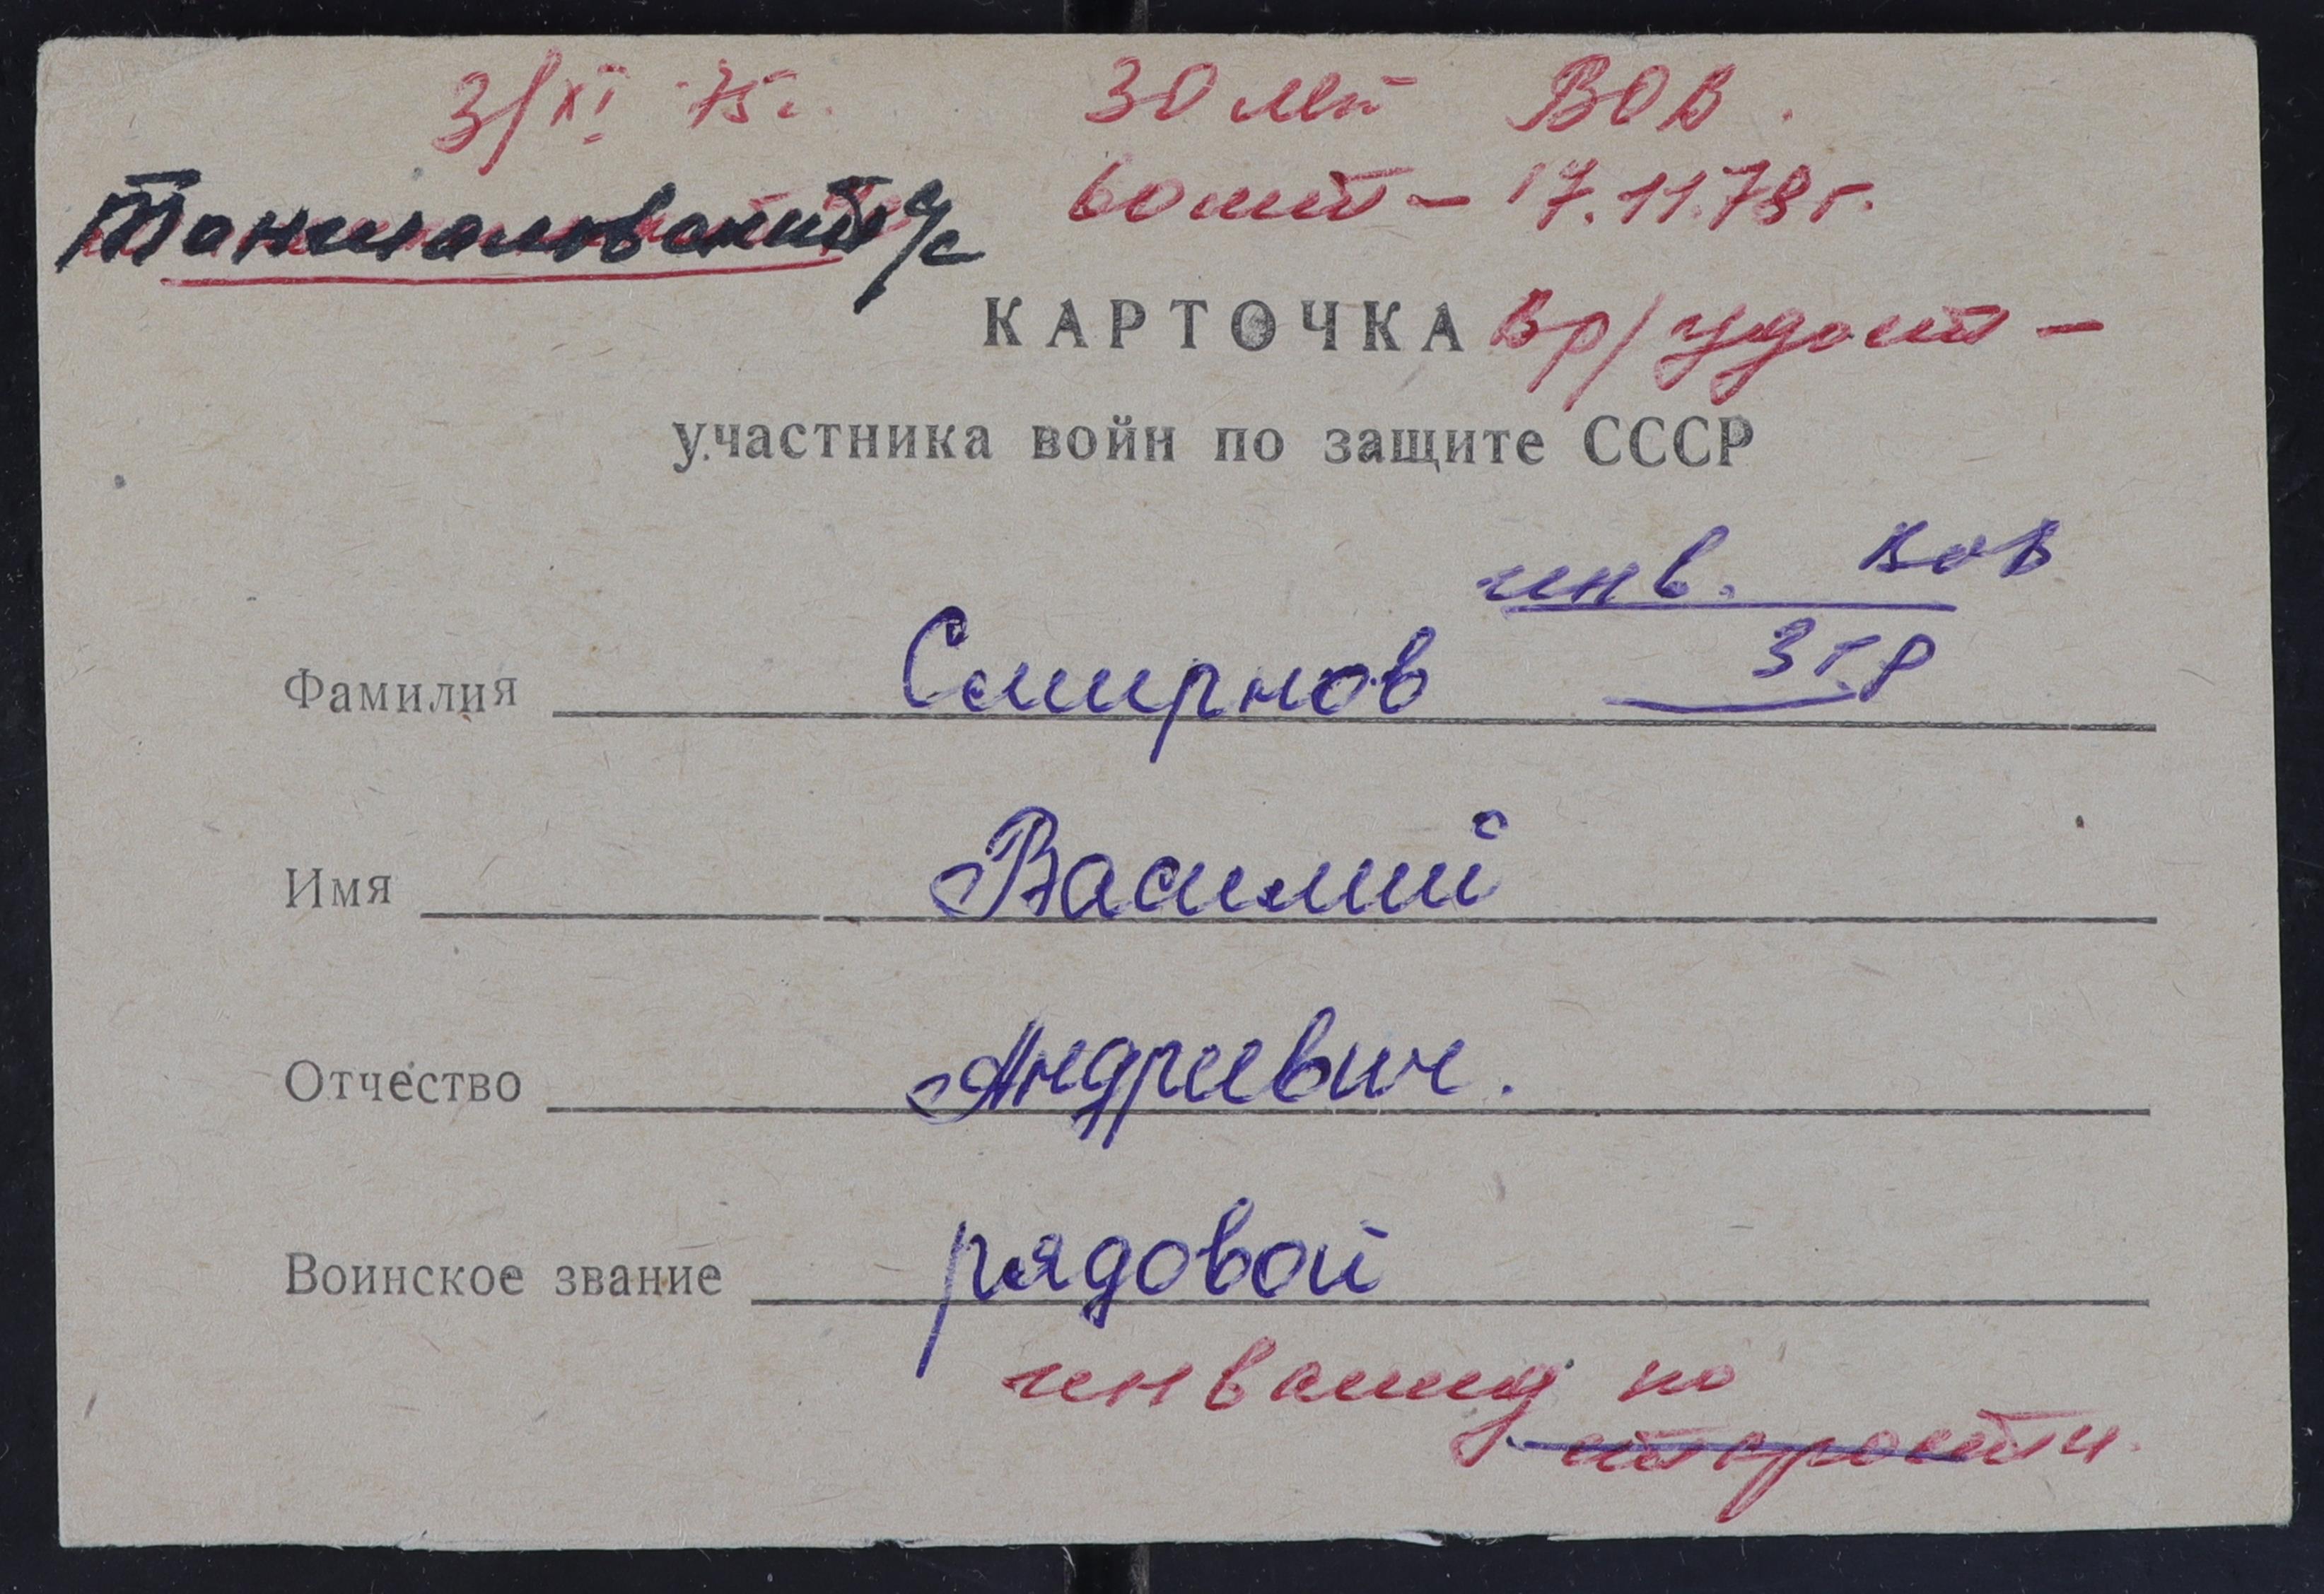 3/XI 75г. 30 лет ВОВ.
60 лет - 17.11.78г.
с/с
КАРТОЧКА Вр/удост -
участника войн по защите СССР
инв. ВОВ
3 гр
Фамилия Смирнов
Имя Василий
Отчество Андреевич.
Воинское звание рядовой
инвалид по
старости.